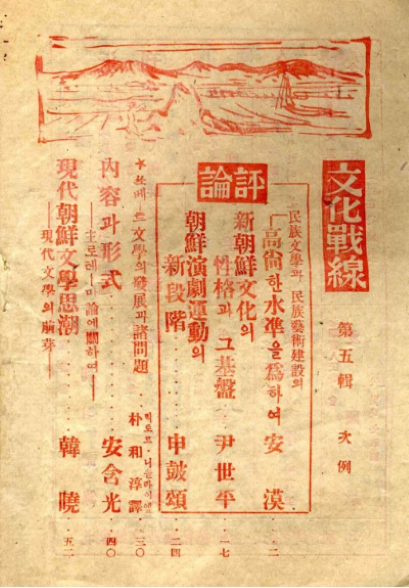 文化戰線
第五輯 次例
評論
民族文學과 民族藝術建設의
「高尙한 水準을 爲하여 安漠 二
新朝鮮文化의
性格과 그 基盤 尹世平 一七
朝鮮演劇運動의
新段階 申鼓頌 二四
★쏘베트文學의發展과諸問題 朴和淳譯 三〇
內容과形式 安含光 四〇
—主로 테―마論에關하여—
現代朝鮮文學思潮 韓曉 五二
—現代文學의 萠芽—